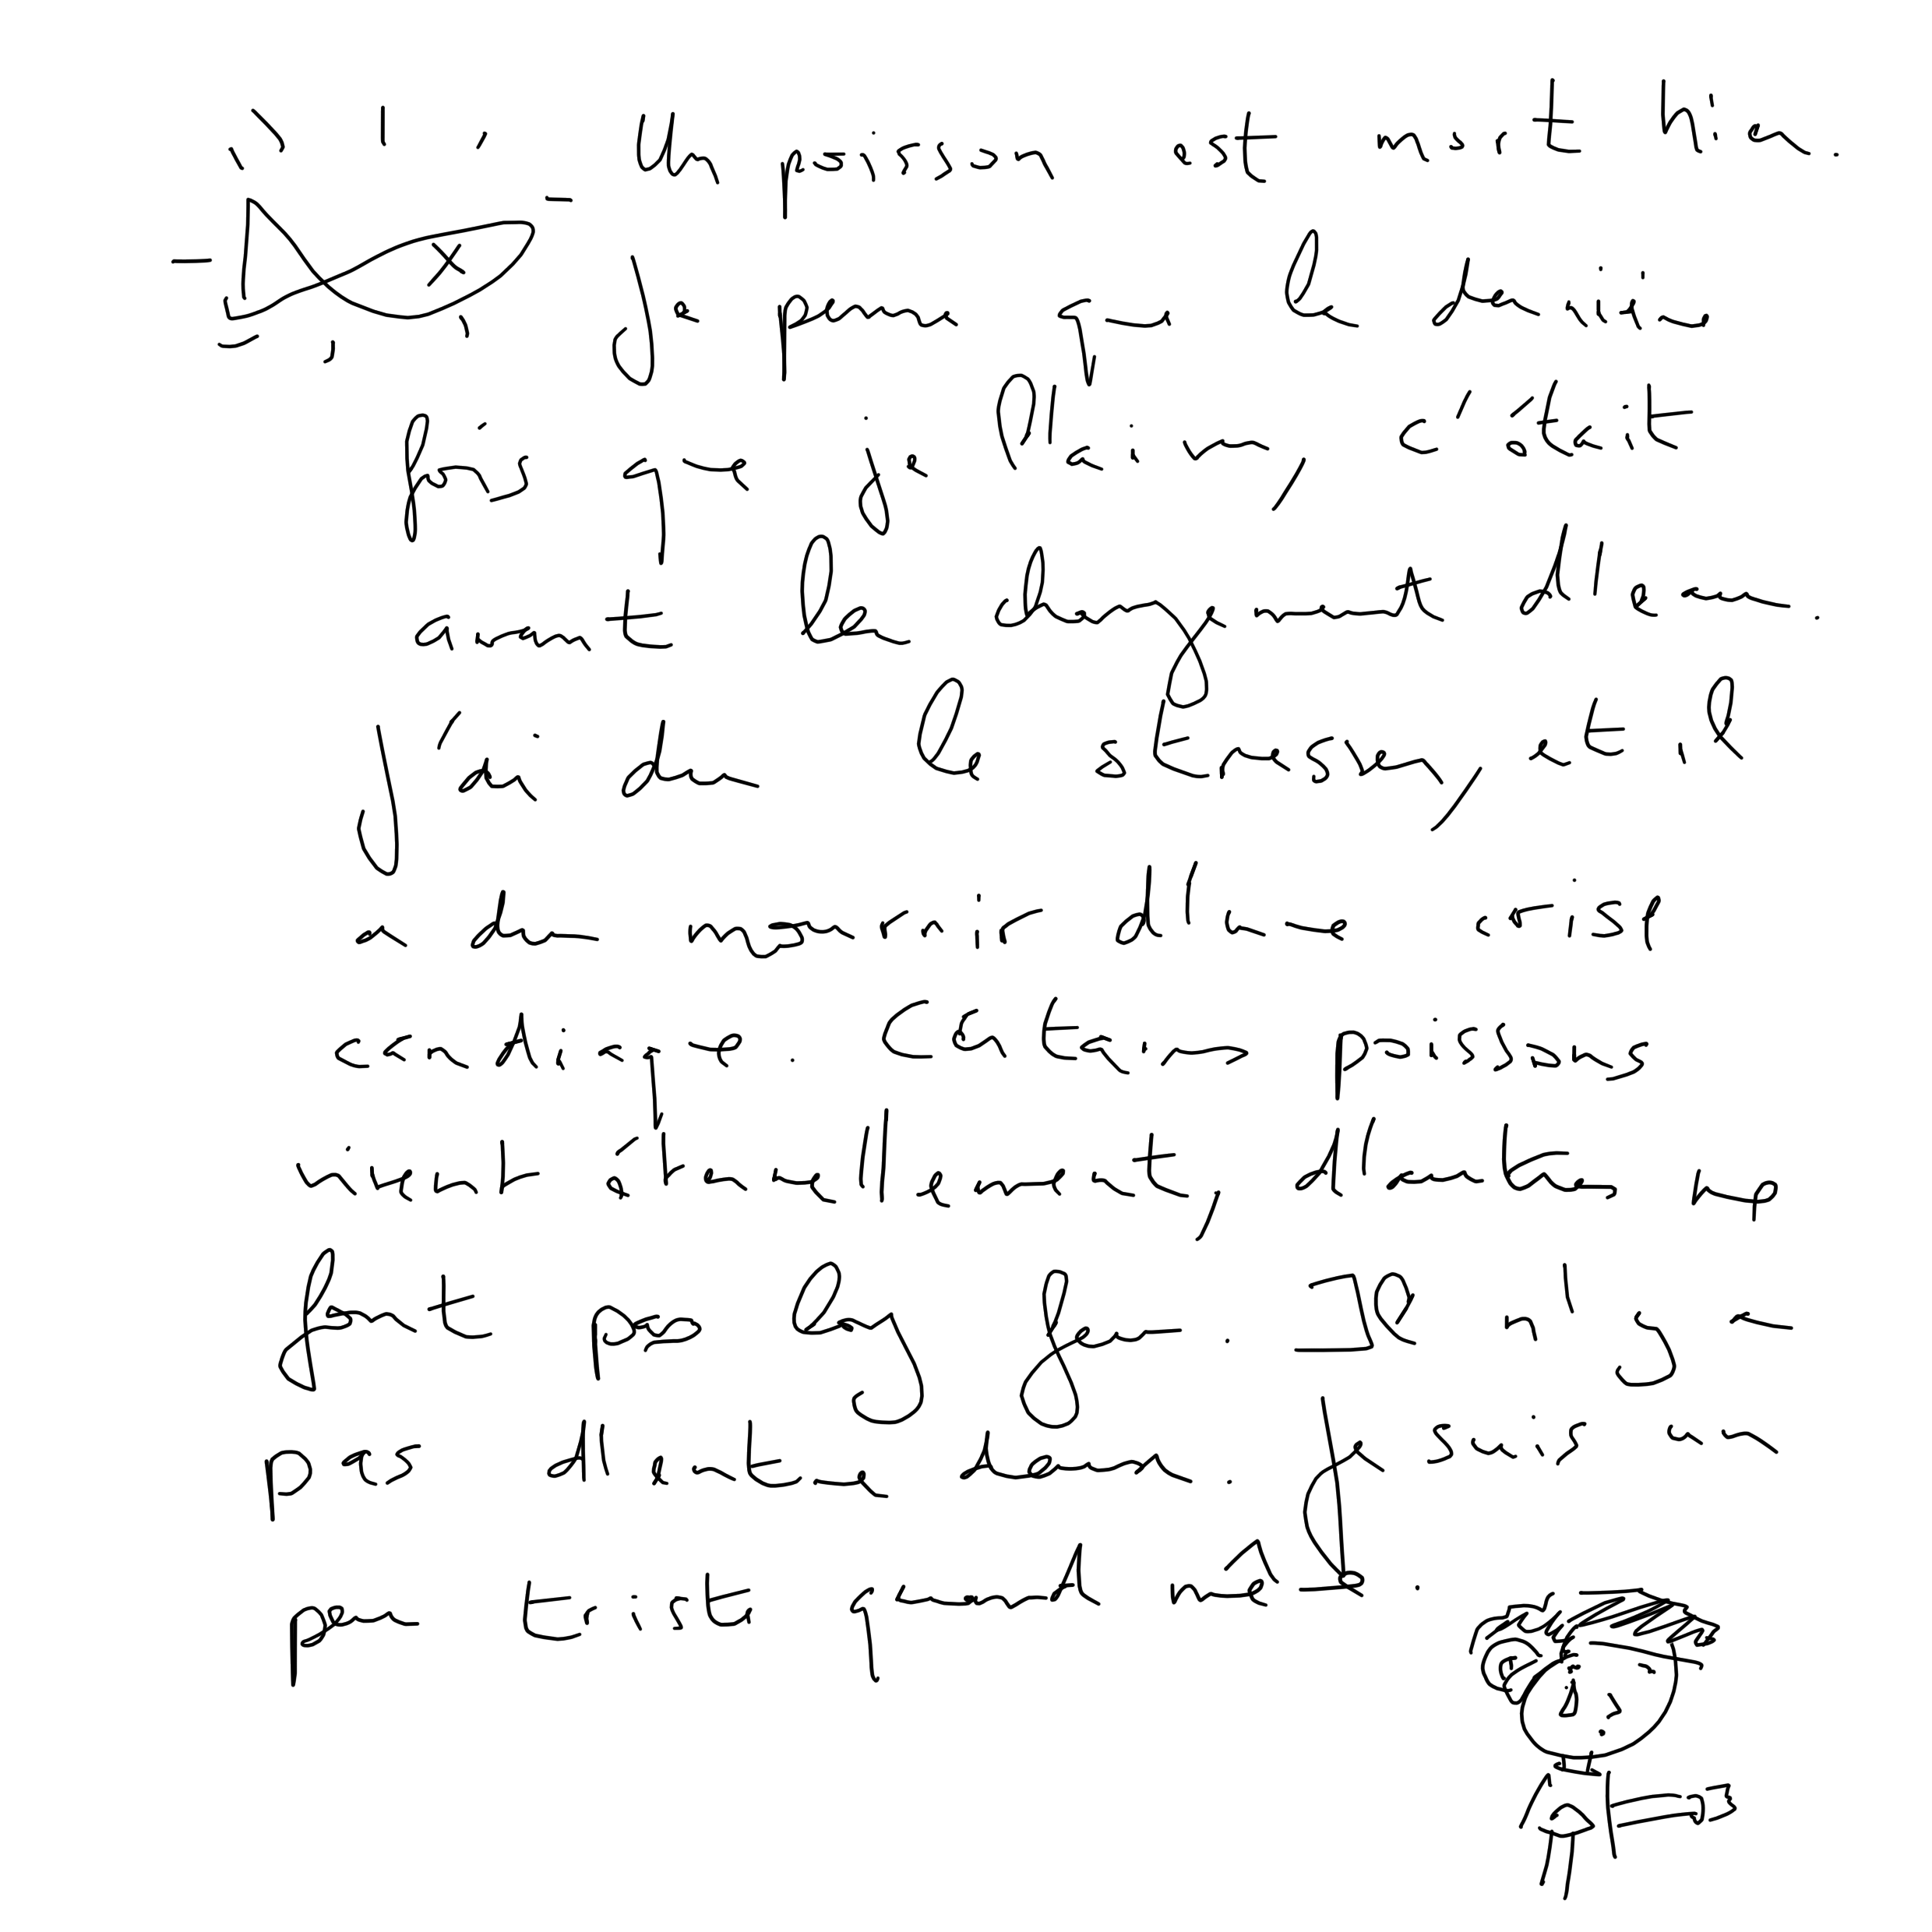 Un poisson est mort hier.
Je pense que la dernière
fois que je l'ai vu, c'était
avant le changement d'eau.
J'ai dû le stresser, et il
a dû mourir d'une crise
cardiaque. Certains poissons
vivent éternellement, d'autres ne
font pas long feu. Il n'y a
pas d'entre deux. Je suis un
peu triste quand même.